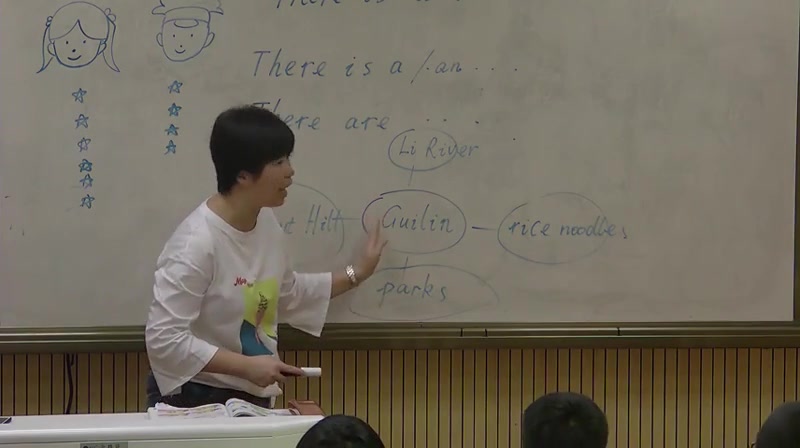 There is a
There is a /an ...
There are ...
Li River
Hill Guilin — rice noodles
parks